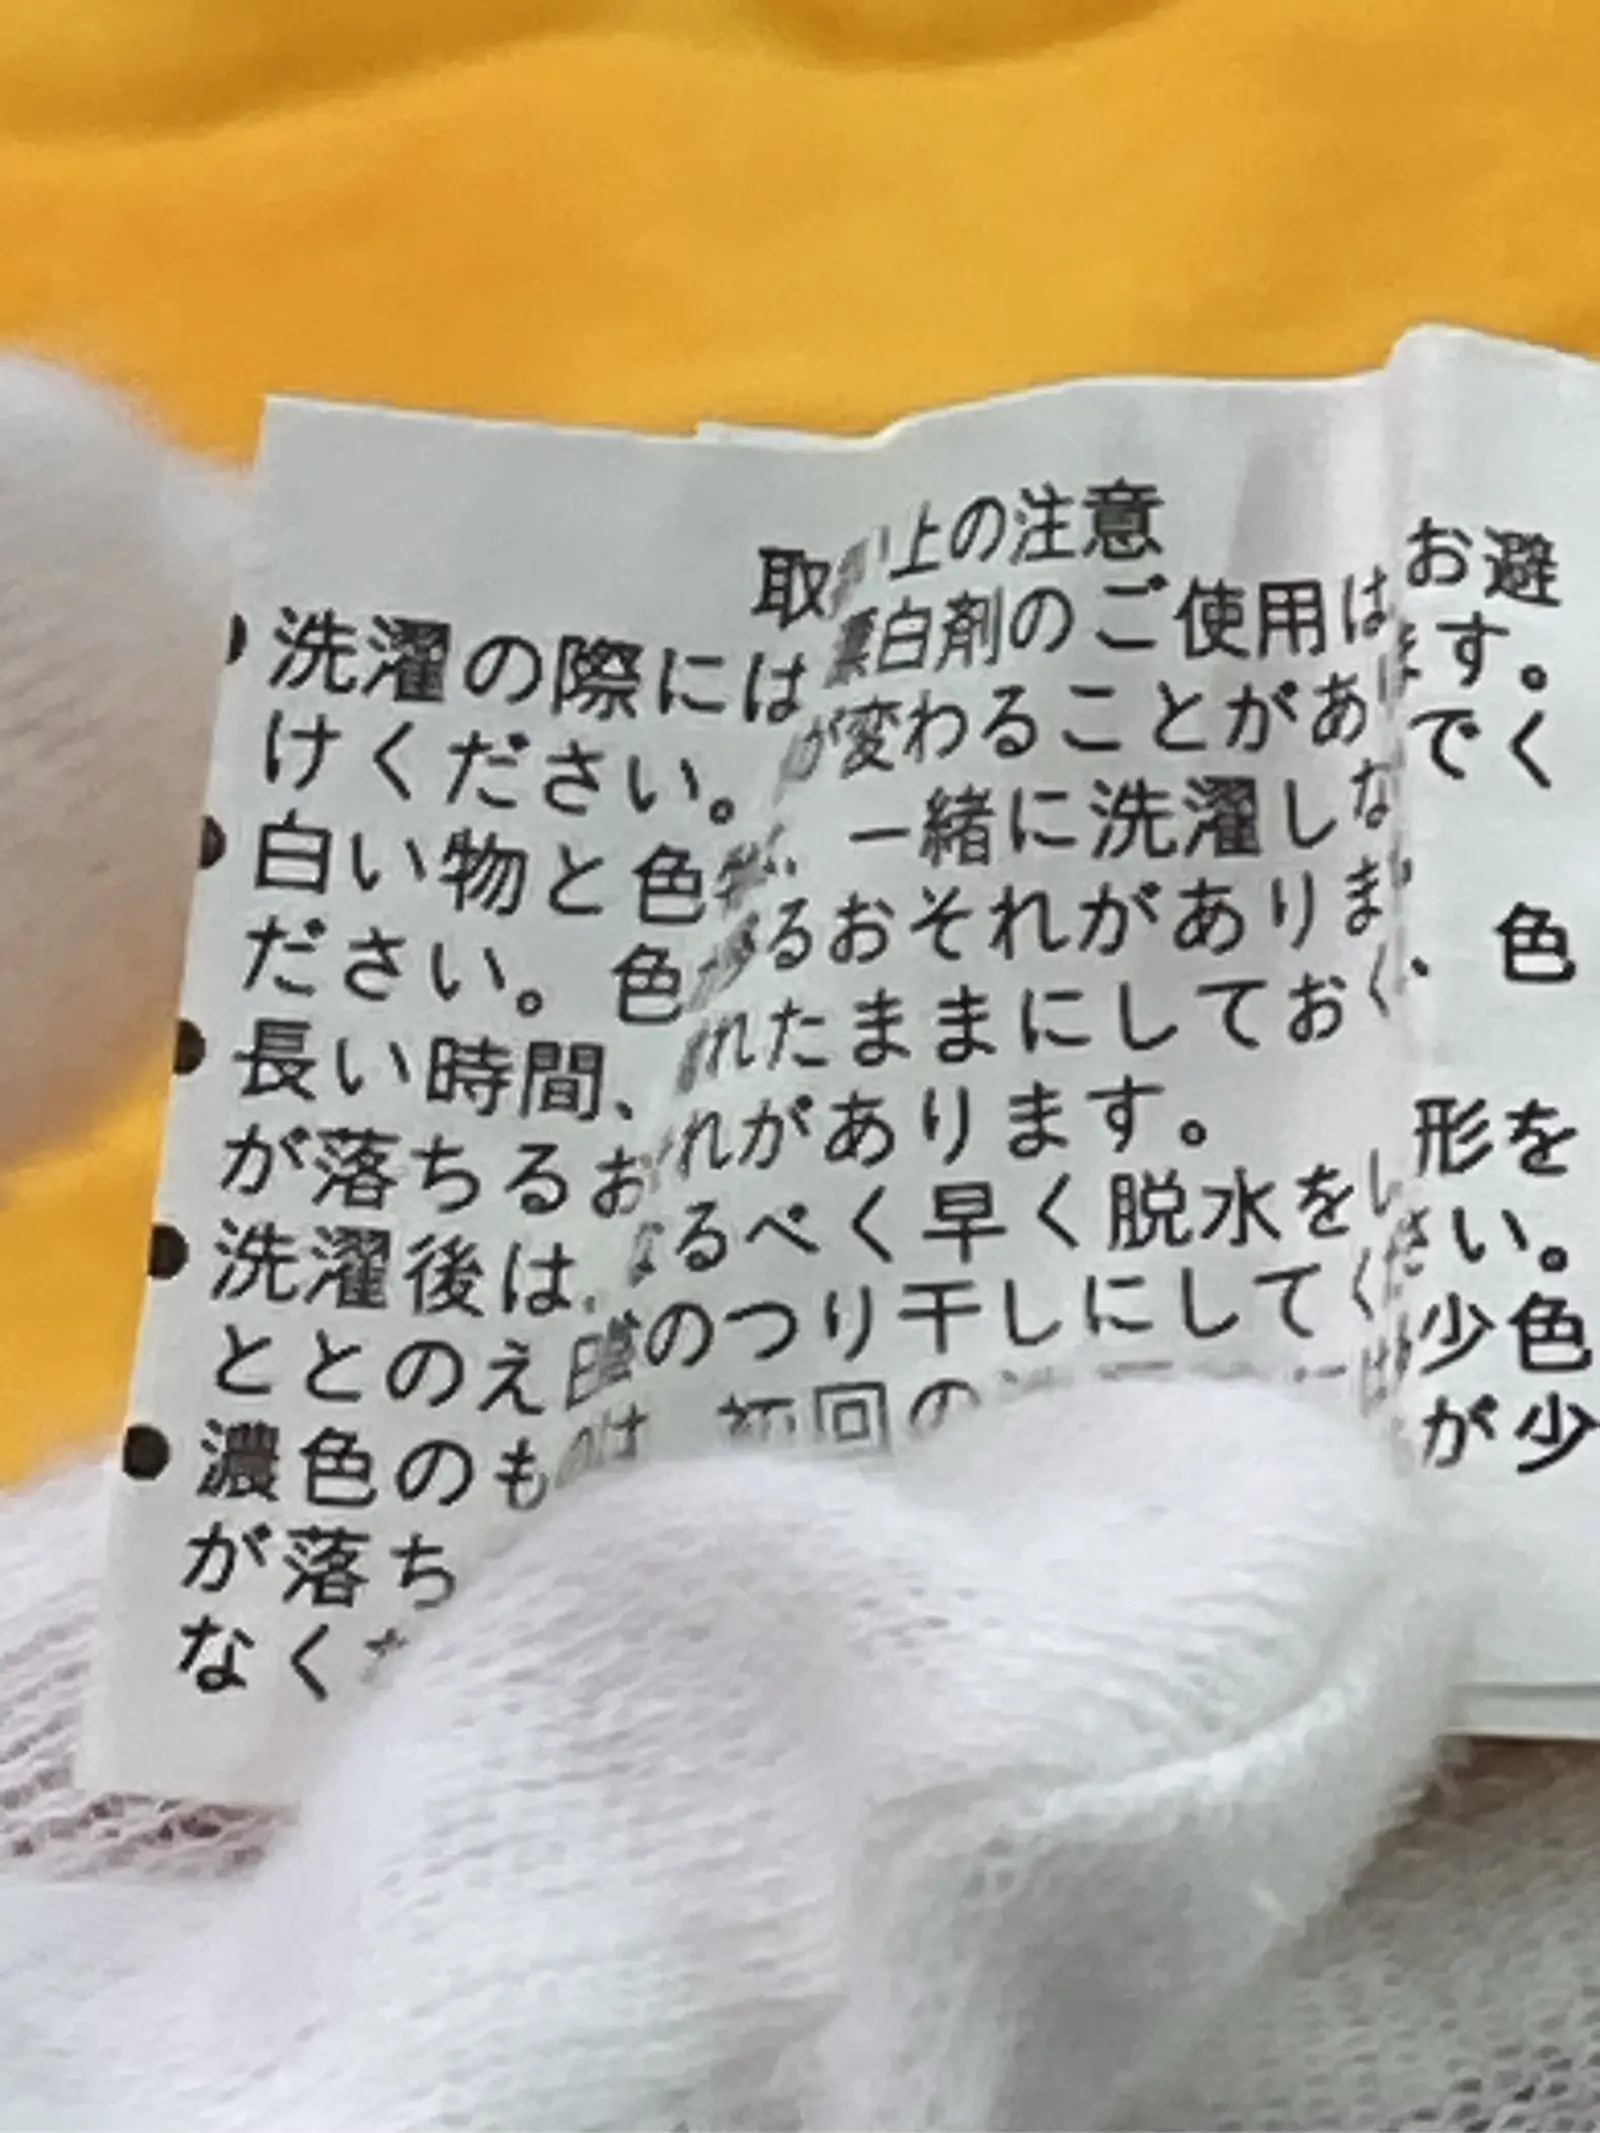 取扱い上の注意
●洗濯の際には漂白剤のご使用はお避
けください。が変わることがあります。
●白い物と色物は、一緒に洗濯しないでく
ださい。色が移るおそれがあります。
●長い時間、濡れたままにしておくと、色
が落ちるおそれがあります。
●洗濯後は、なるべく早く脱水をし、形を
ととのえ日陰のつり干しにしてください。
●濃色のものは、初回の は少色
が落ち が少
なく